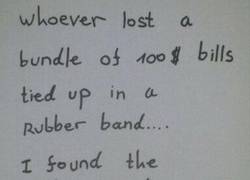 whoever lost a
bundle of 100$ bills
tied up in a
Rubber band....
I found the